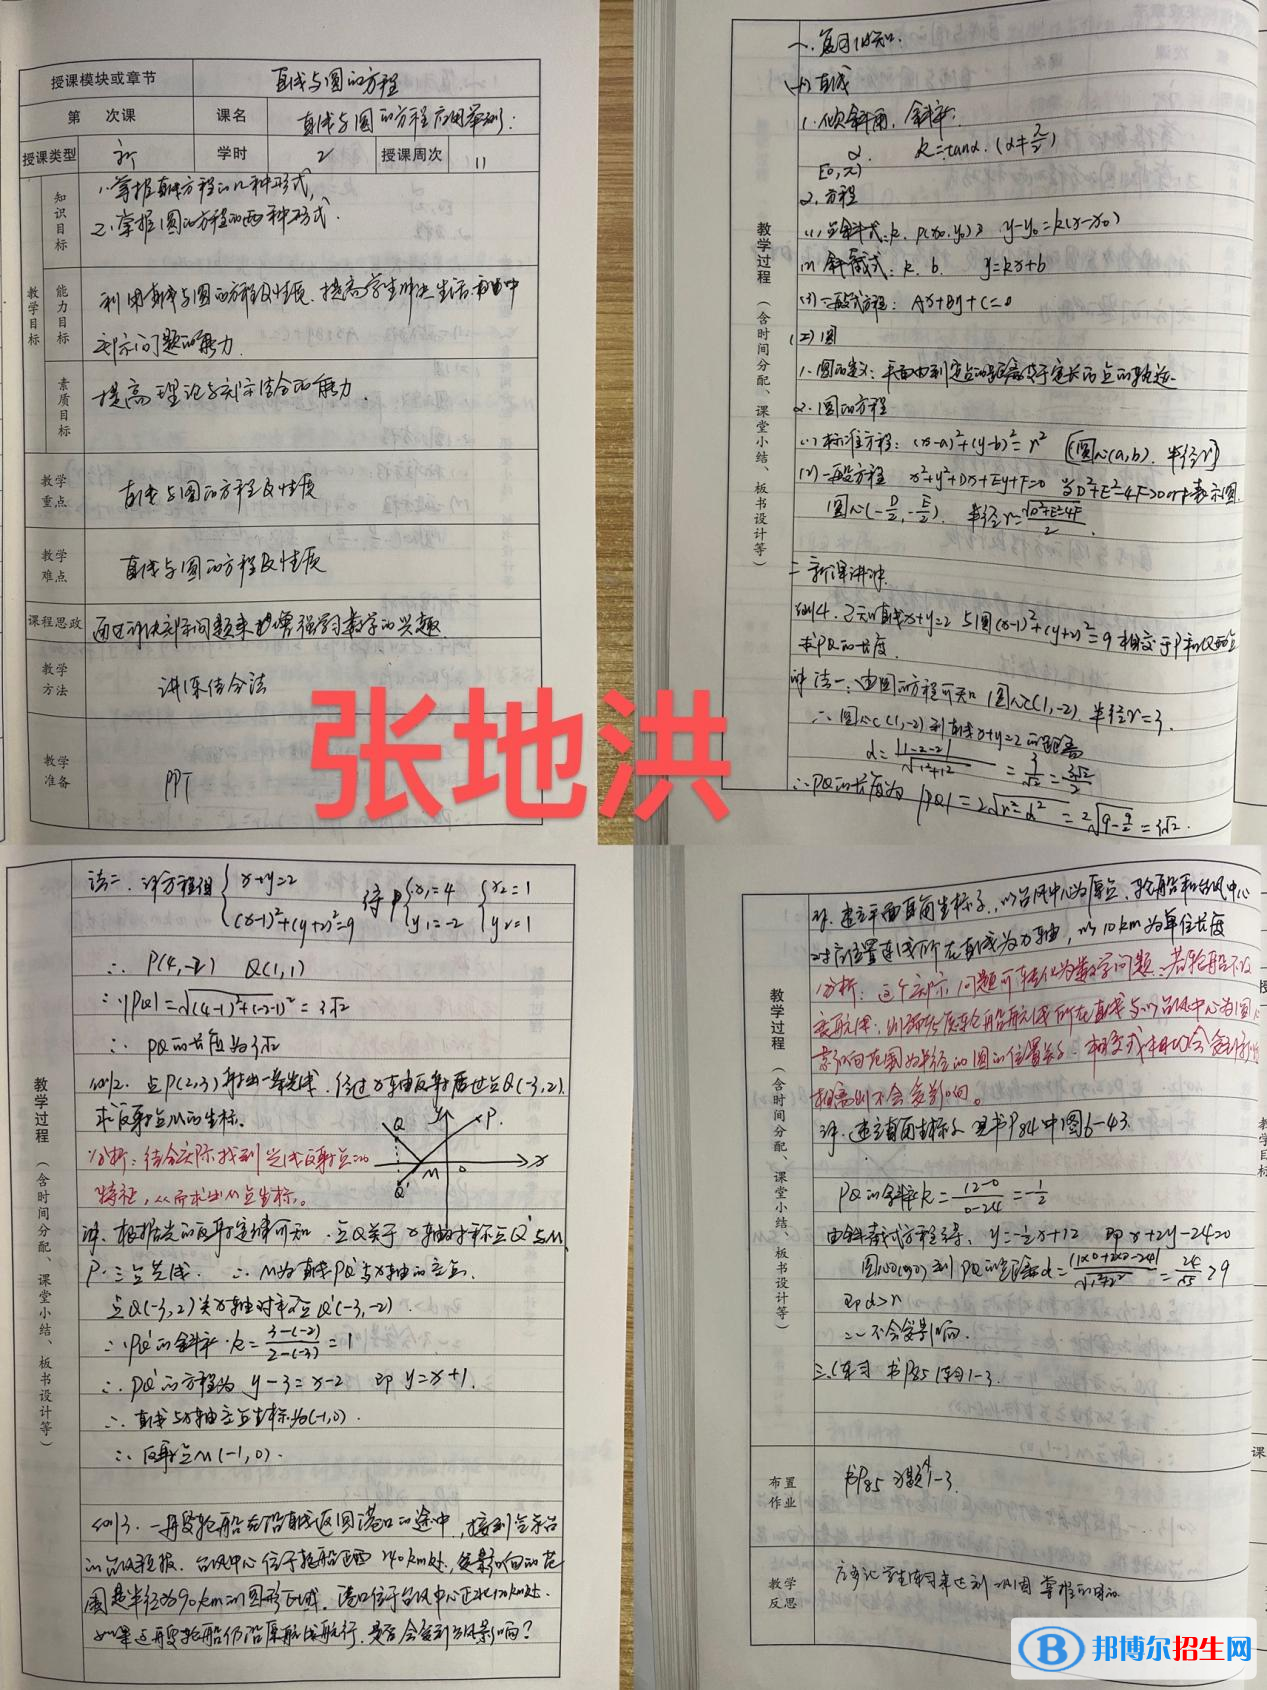 授课模块或章节 直线与圆的方程
第 次课 课名 直线与圆的方程应用举例:
授课类型 新 学时 2 授课周次 11
教学目标
知识目标
1.掌握直线方程的几种形式,
2.掌握圆的方程的两种形式.
能力目标
利用直线与圆的方程及性质.提高学生解决生活.
实际问题的能力.
素质目标
提高理论与实际结合的能力.
教学重点
直线与圆的方程及性质
教学难点
直线与圆的方程及性质
课程思政
通过解决实际问题来增强学习数学的兴趣.
教学方法
讲练结合法
教学准备
PPT
张地洪
教学过程(含时间分配、课堂小结、板书设计等)
一.复习旧知.
(一)直线
1.倾斜角. 斜率:
α. k=tanα.(α≠π/2)
[0,π)
2.方程
(1)点斜式:k. P(x₀,y₀) y-y₀=k(x-x₀)
(2)斜截式:k. b. y=kx+b
(3)一般式方程: Ax+By+C=0
(二)圆
1.圆的定义:平面内到定点的距离等于定长的点的轨迹.
2.圆的方程
(1)标准方程:(x-a)²+(y-b)²=r² [圆心(a,b). 半径r]
(2)一般方程 x²+y²+Dx+Ey+F=0 当D²+E²-4F>0时表示圆.
圆心(-D/2,-E/2). 半径r=√(D²+E²-4F)/2.
二新课讲解.
例1.已知直线x+y=2 与圆(x-1)²+(y+2)²=9 相交于P和Q两点
求PQ的长度.
解 法一:由圆的方程可知 圆心C(1,-2) 半径r=3.
∴圆心C(1,-2)到直线x+y=2的距离
d=|1-2-2|/√(1²+1²)=3/√2=3√2/2
∴PQ的长度为|PQ|=2√(r²-d²)=2√(9-9/2)=3√2.
教学过程(含时间分配、课堂小结、板书设计等)
法二.解方程组{x+y=2 (x-1)²+(y+2)²=9 得{x₁=4 y₁=-2 {x₂=1 y₂=1
∴ P(4,-2) Q(1,1)
∴|PQ|=√((4-1)²+(-2-1)²)=3√2
∴ PQ的长度为3√2
例2. 点P(2,3)射出一条光线.经过x轴反射后过点Q(-3,2).
求反射点M的坐标.
分析:结合实际找到光线反射点的
特征,从而求出M点坐标。
Q y P. M o x Q'
解.根据光的反射定律可知.点Q关于x轴对称点Q'与M,
P.三点共线. ∴M为直线PQ'与x轴的交点.
点Q(-3,2)关x轴对称点Q'(-3,-2).
∴PQ'的斜率.k=3-(-2)/2-(-3)=1
∴PQ'的方程为 y-3=x-2 即y=x+1.
∴直线与x轴交点坐标为(-1,0).
∴反射点M(-1,0).
例3.一艘轮船在沿直线返回港口的途中,接到气象台
的台风预报.台风中心位于轮船正西240km处.受影响的范
围是半径为90km的圆形区域.港口位于台风中心正北120km处.
如果这艘轮船仍沿原航线航行.是否会受到台风影响?
教学过程(含时间分配、课堂小结、板书设计等)
建立平面直角坐标系,以台风中心为原点.轮船和台风中心
位置连线所在直线为x轴,以10km为单位长度
分析:这个实际问题可转化为数学问题.若轮船不改
变航线,轮船航线所在直线与以台风中心为圆心
影响范围为半径的圆的位置关系.相交或相切会受到影响
相离则不会受影响。
解.建立直角坐标系 见书P84中图6-43.
PQ的斜率k=12-0/0-24=-1/2
由斜截式方程得. y=-1/2x+12 即x+2y-24=0
圆心O(0,0)到PQ的距离d=|1×0+2×0-24|/√(1²+2²)=24/√5>9
即d>r
∴不会受影响.
三.练习 书P85练习1-3.
布置作业
书P85 习题1-3.
教学反思
学生练习 达到巩固掌握的目的
邦博尔招生网